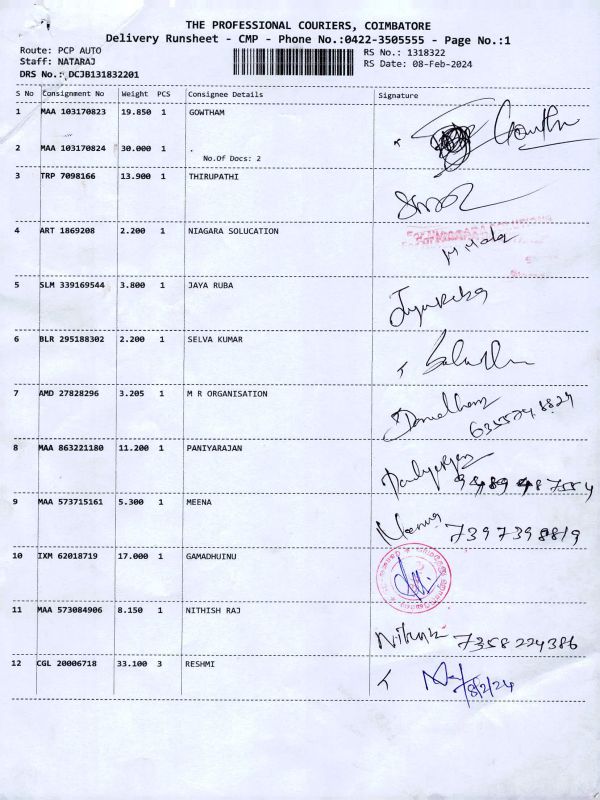 THE PROFESSIONAL COURIERS, COIMBATORE
Delivery Runsheet - CMP - Phone No.:0422-3505555 - Page No.:1
Route: PCP AUTO RS No.: 1318322
Staff: NATARAJ RS Date: 08-Feb-2024
DRS No.: DCJB131832201
S No Consignment No Weight PCS Consignee Details Signature
1 MAA 103170823 19.850 1 GOWTHAM
2 MAA 103170824 30.000 1 .
No.Of Docs: 2
3 TRP 7098166 13.900 1 THIRUPATHI
4 ART 1869208 2.200 1 NIAGARA SOLUCATION
5 SLM 339169544 3.800 1 JAYA RUBA
6 BLR 295188302 2.200 1 SELVA KUMAR
7 AMD 27828296 3.205 1 M R ORGANISATION
8 MAA 863221180 11.200 1 PANIYARAJAN
9 MAA 573715161 5.300 1 MEENA
Meena 7397398819
10 IXM 62018719 17.000 1 GAMADHUINU
11 MAA 573084906 8.150 1 NITHISH RAJ
7358224386
12 CGL 20006718 33.100 3 RESHMI
/8/2/24